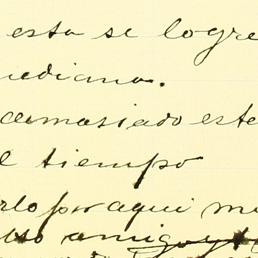 esta se logre
mediana.
demasiado este
el tiempo
por aqui
amigo